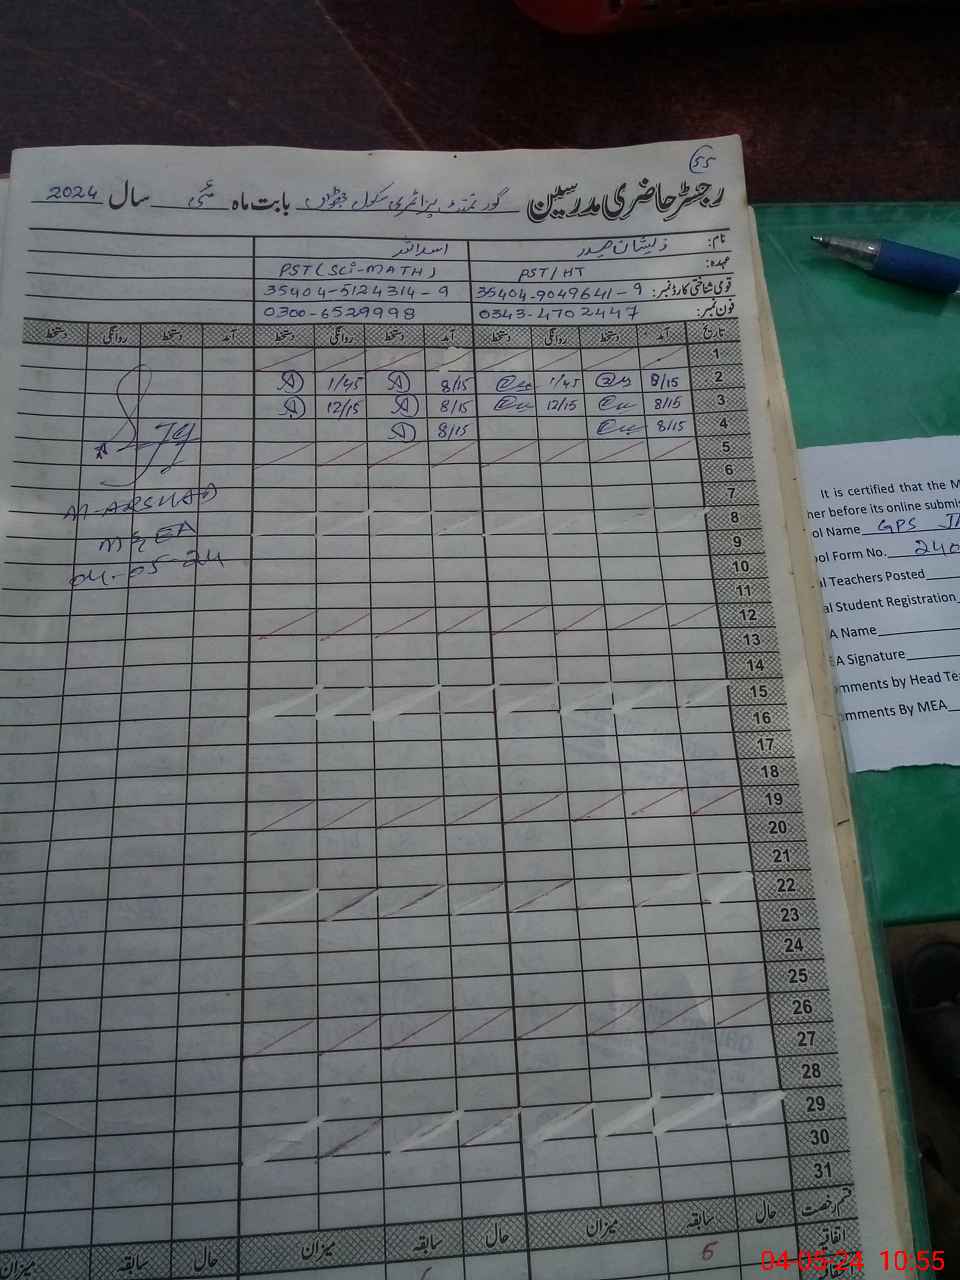 55
رجسٹر حاضری مدرسین گورنمنٹ پرائمری سکول بابت ماہ مئی سال 2024
نام: ذیشان حیدر اسد اللہ
عہدہ: PST/HT PST (SCI-MATH)
قومی شناختی کارڈ نمبر: 35404-9049641-9 35404-5124314-9
فون نمبر: 0343-4702447 0300-6529998
تاریخ آمد دستخط روانگی دستخط آمد دستخط روانگی دستخط آمد دستخط روانگی دستخط
1
2 8/15 1/45 8/15 1/45
3 8/15 12/15 8/15 12/15
4 8/15 8/15
5
6
7
8
9
10
11
12
13
14
15
16
17
18
19
20
21
22
23
24
25
26
27
28
29
30
31
M-ARSHAD
MEA
04-05-24
قسم رخصت حال سابقہ میزان حال سابقہ میزان حال سابقہ میزان
اتفاقیہ 5
It is certified that the M
her before its online submis
ol Name GPS
ool Form No. 240
al Teachers Posted
al Student Registration
A Name
EA Signature
omments by Head Tea
omments By MEA
04-05-24 10:55